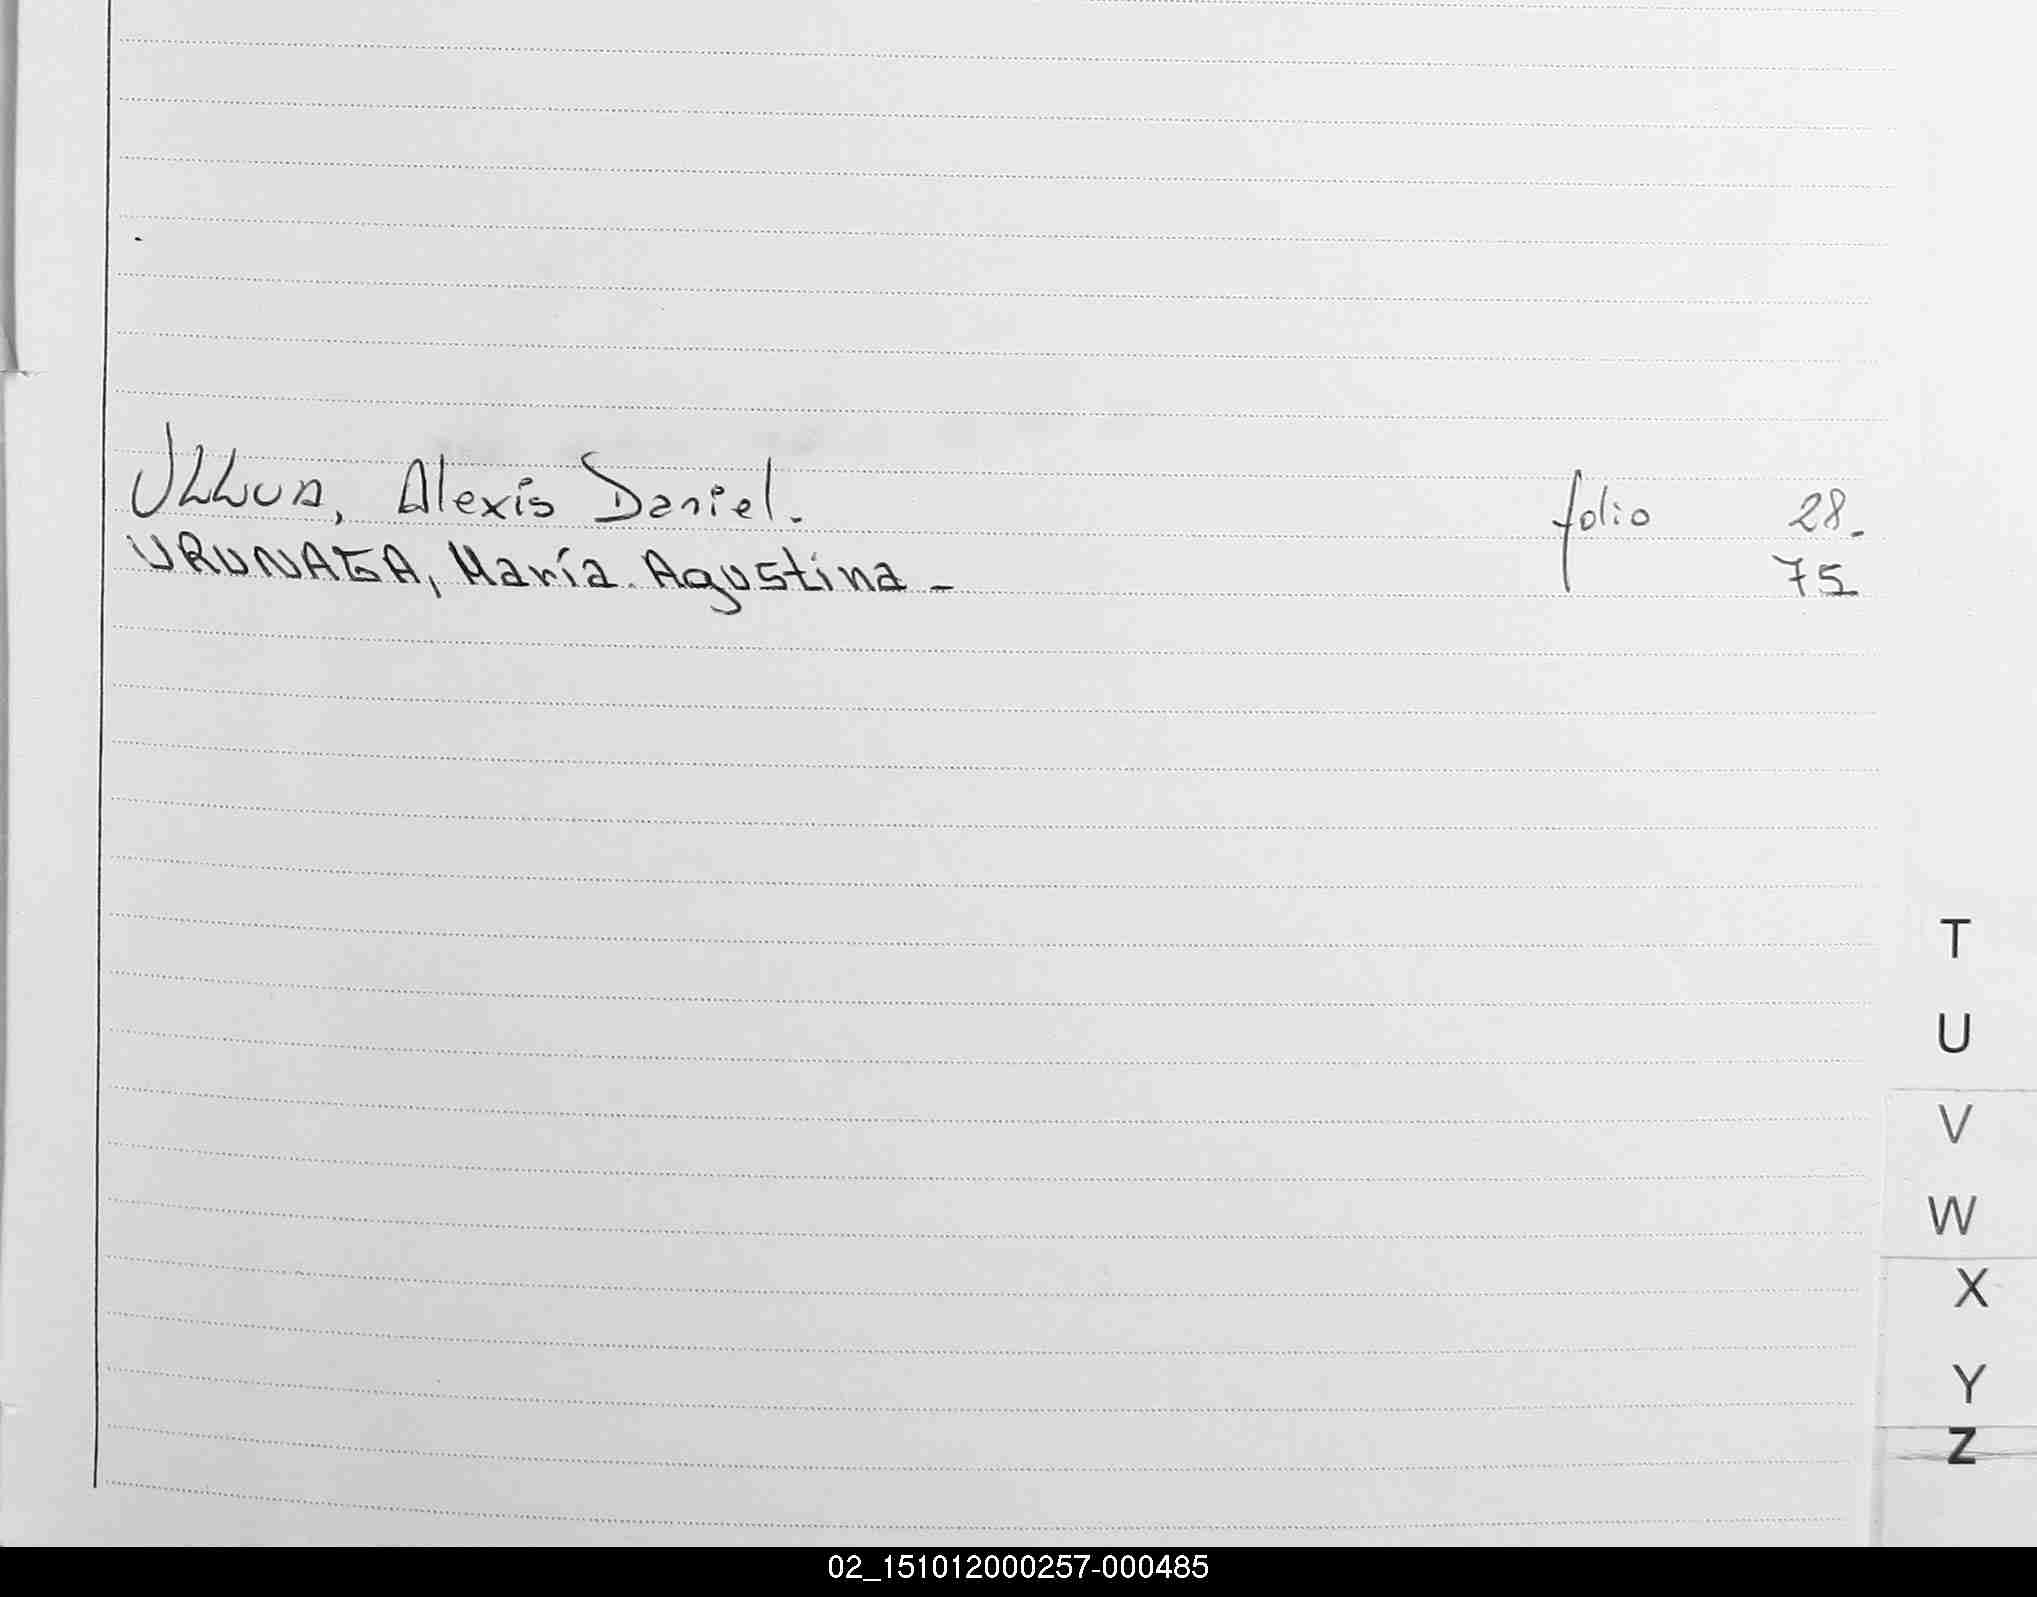 ULLUA, Alexis Daniel. folio 28.
URUNAGA, María Agustina - 75
T
U
V
W
X
Y
Z
02_151012000257-000485